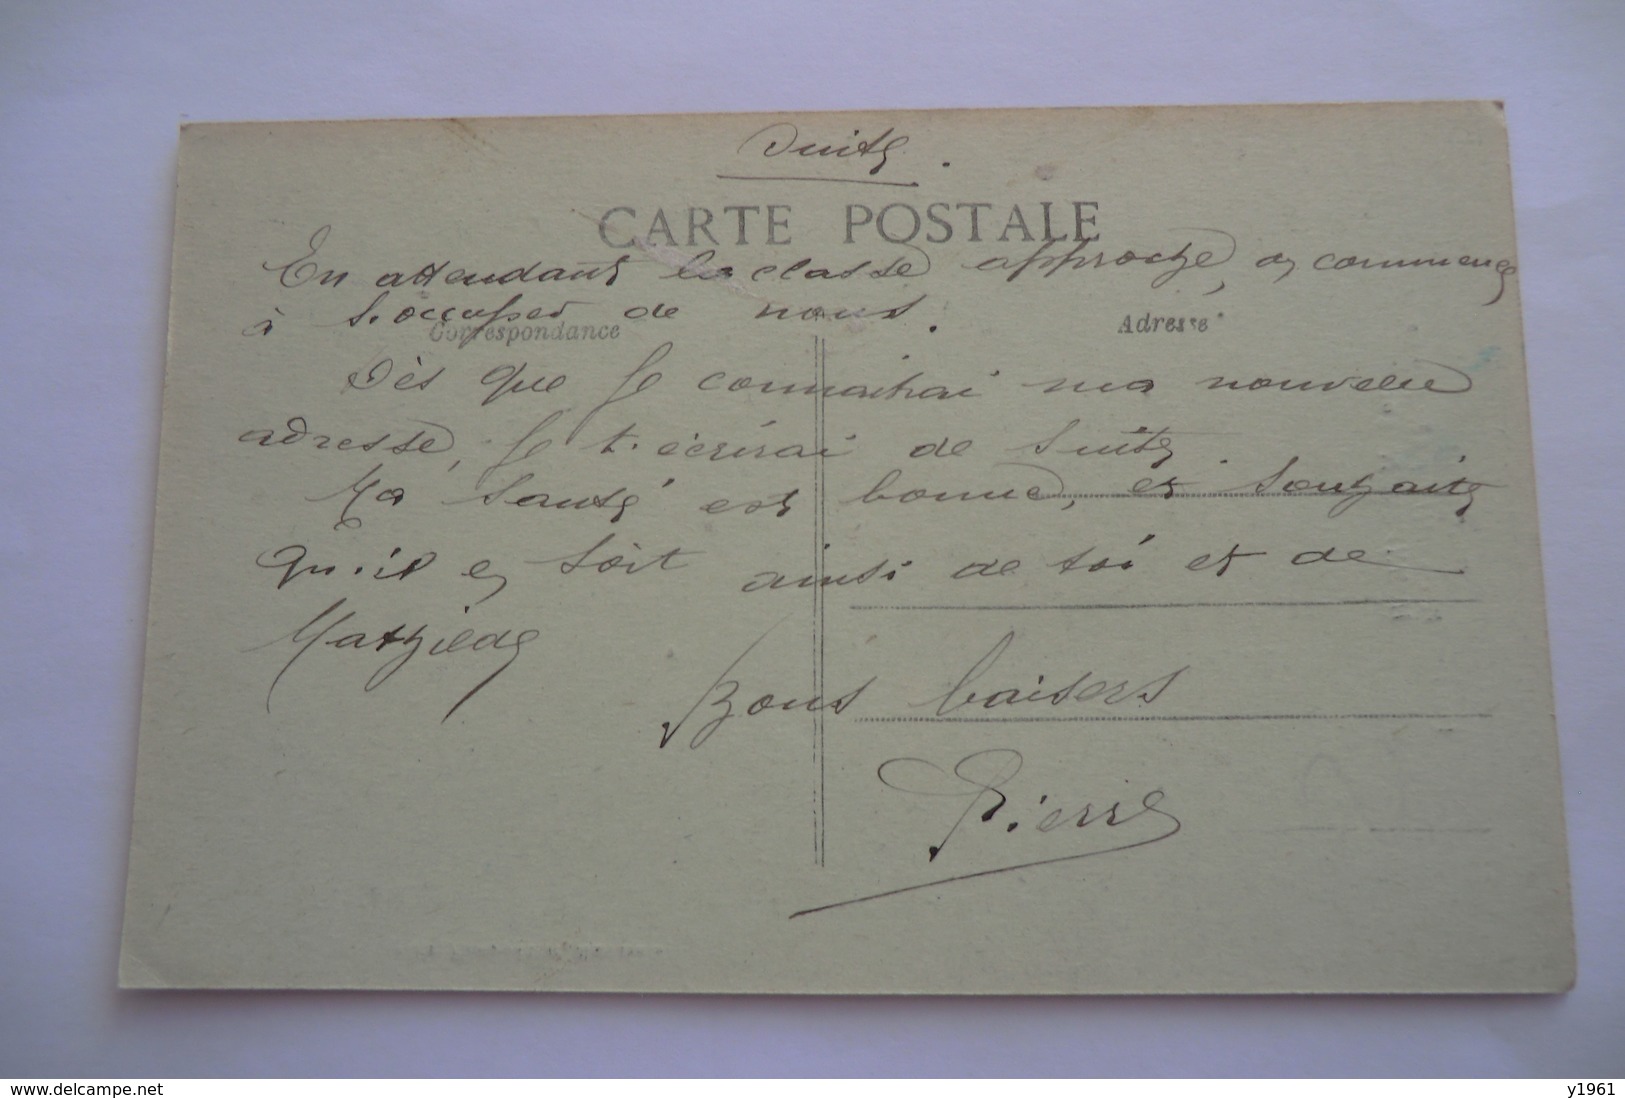 Suite.
CARTE POSTALE
En attendant la classe approche, on commence
à s'occuper de nous.
Correspondance
Adresse
Dès que je connaitrai ma nouvelle
adresse, je t'écrirai de suite
Ma santé est bonne, et souhaite
qu'il en soit ainsi de toi et de
Mathilde
Bons baisers
Pierre
www.delcampe.net
y1961